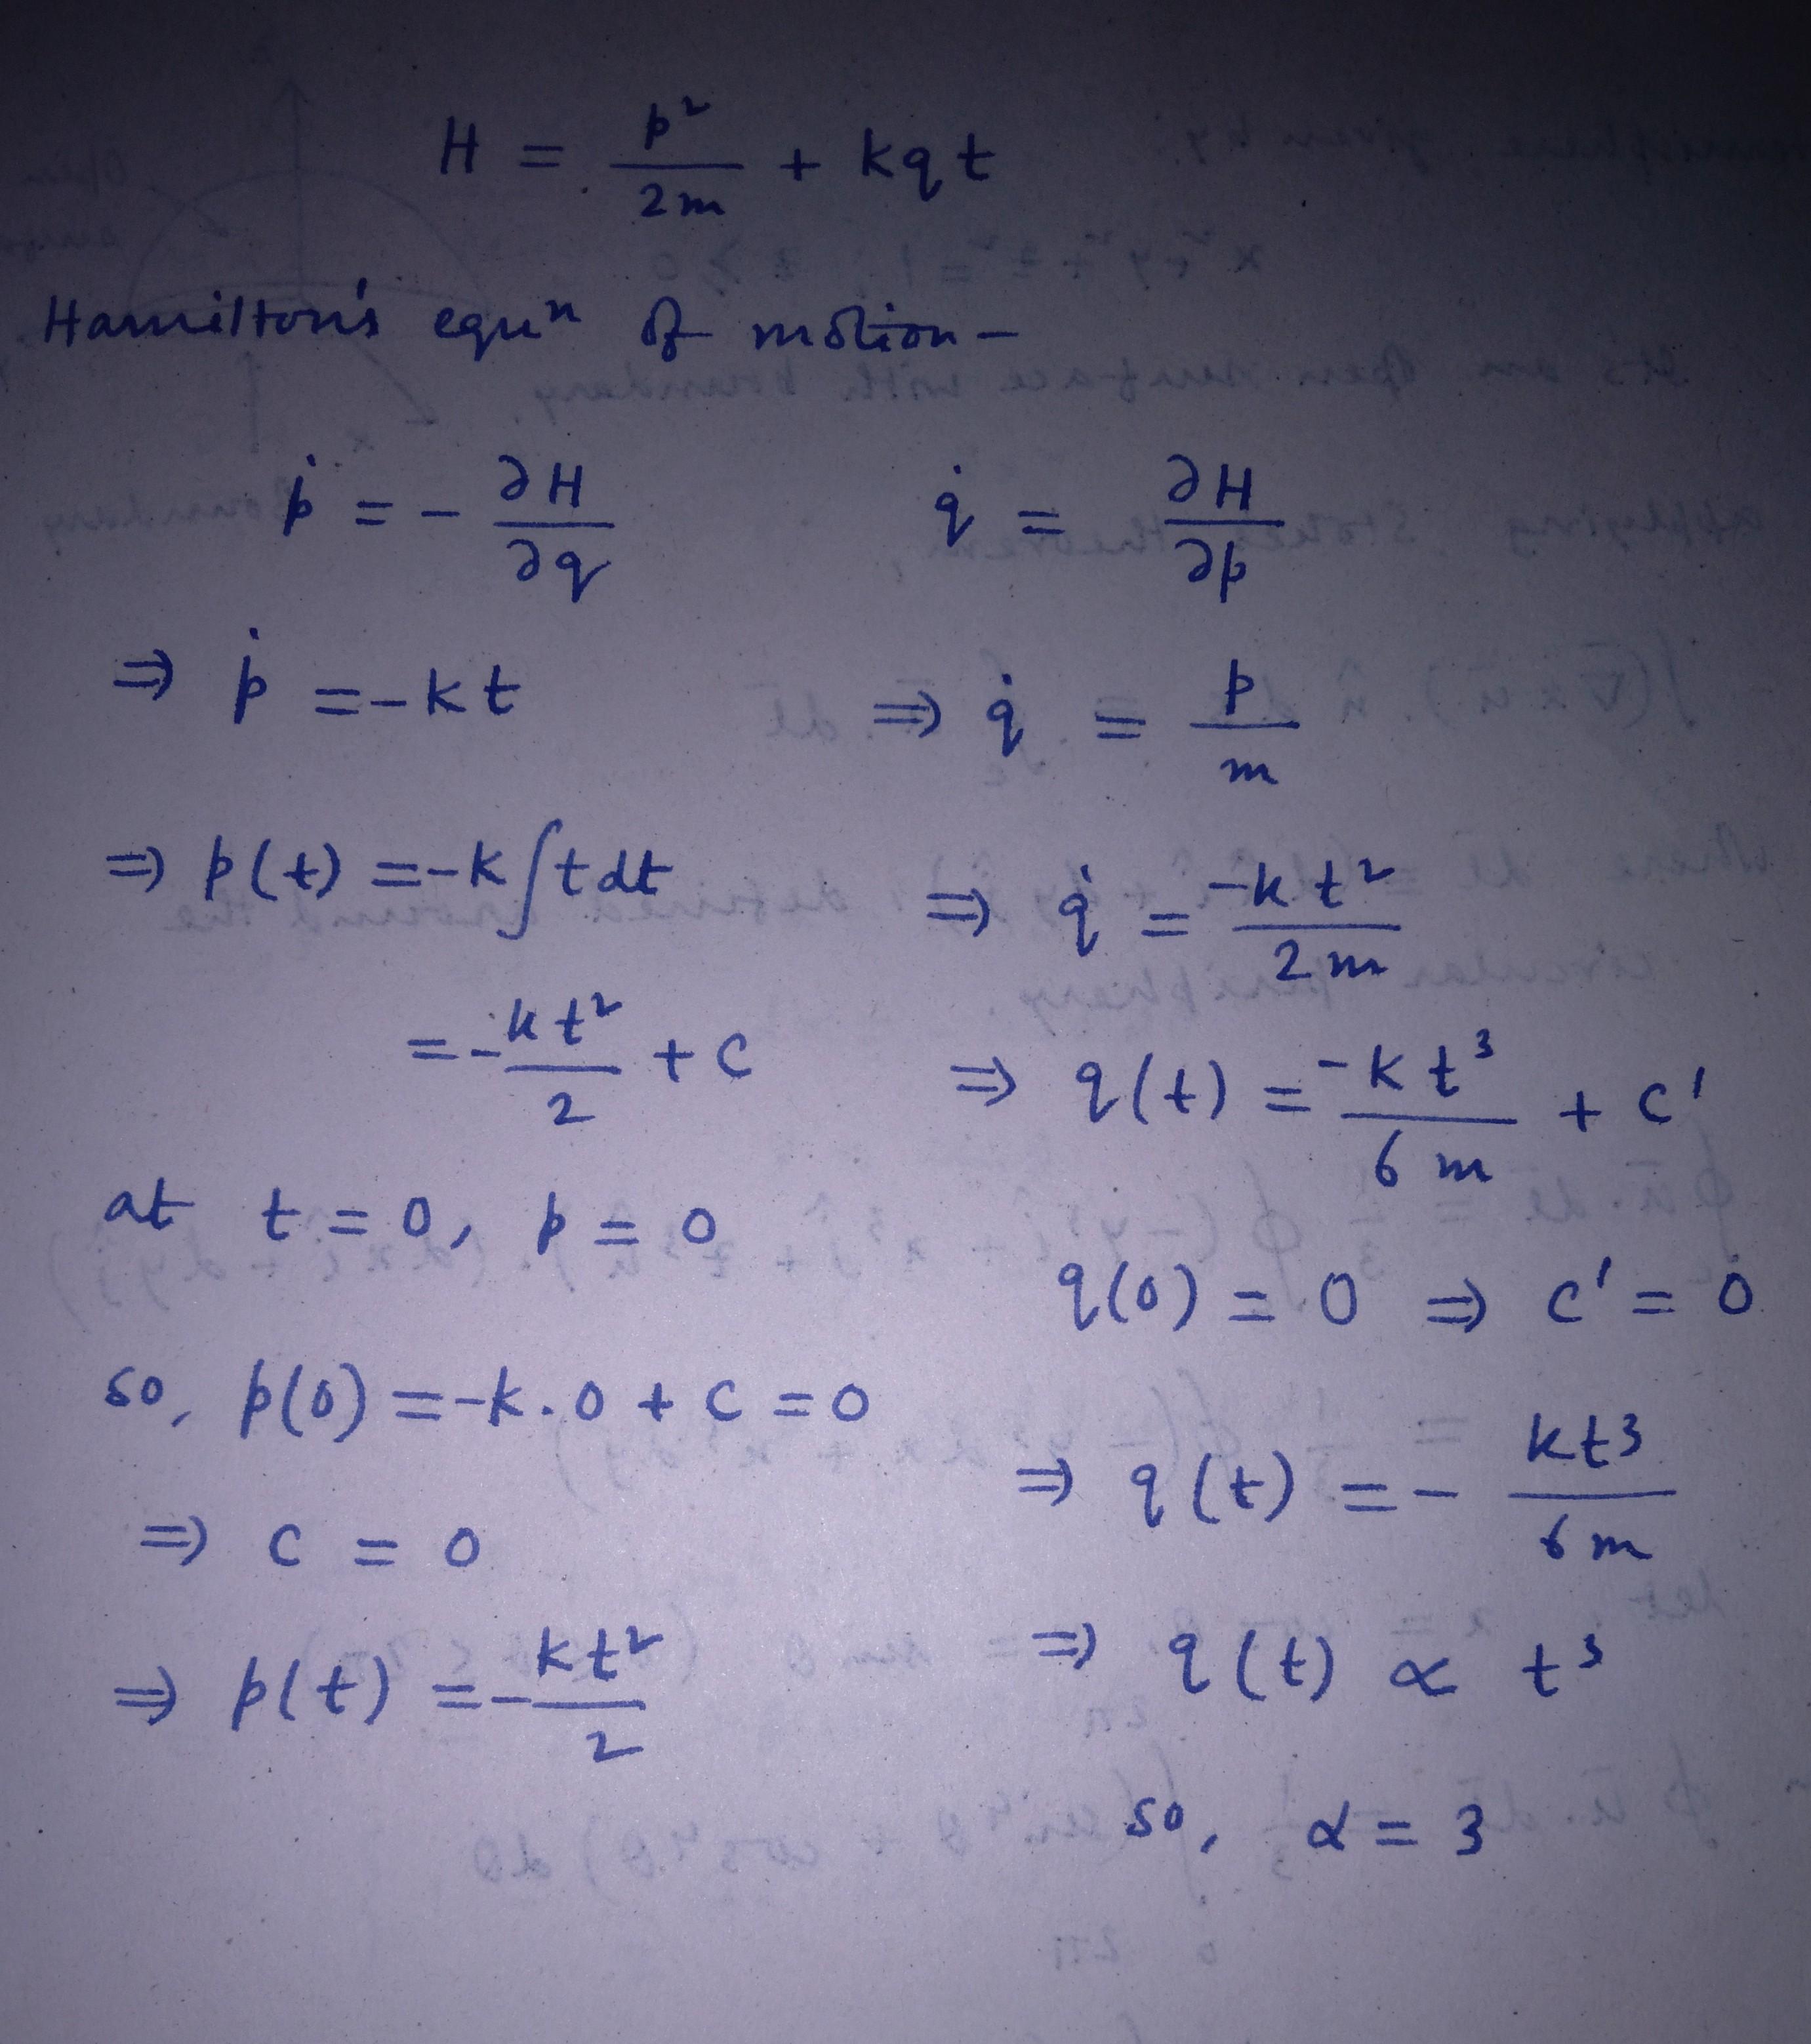 H = p²/2m + kqt
Hamilton's equⁿ of motion –
ṗ = - ∂H/∂q
⇒ ṗ = -kt
⇒ p(t) = -k∫t dt
= -kt²/2 + c
at t = 0, p = 0
so, p(0) = -k.0 + c = 0
⇒ c = 0
⇒ p(t) = -kt²/2
q̇ = ∂H/∂p
⇒ q̇ = p/m
⇒ q̇ = -kt²/2m
⇒ q(t) = -kt³/6m + c'
q(0) = 0 ⇒ c' = 0
⇒ q(t) = - kt³/6m
⇒ q(t) ∝ t³
so, α = 3